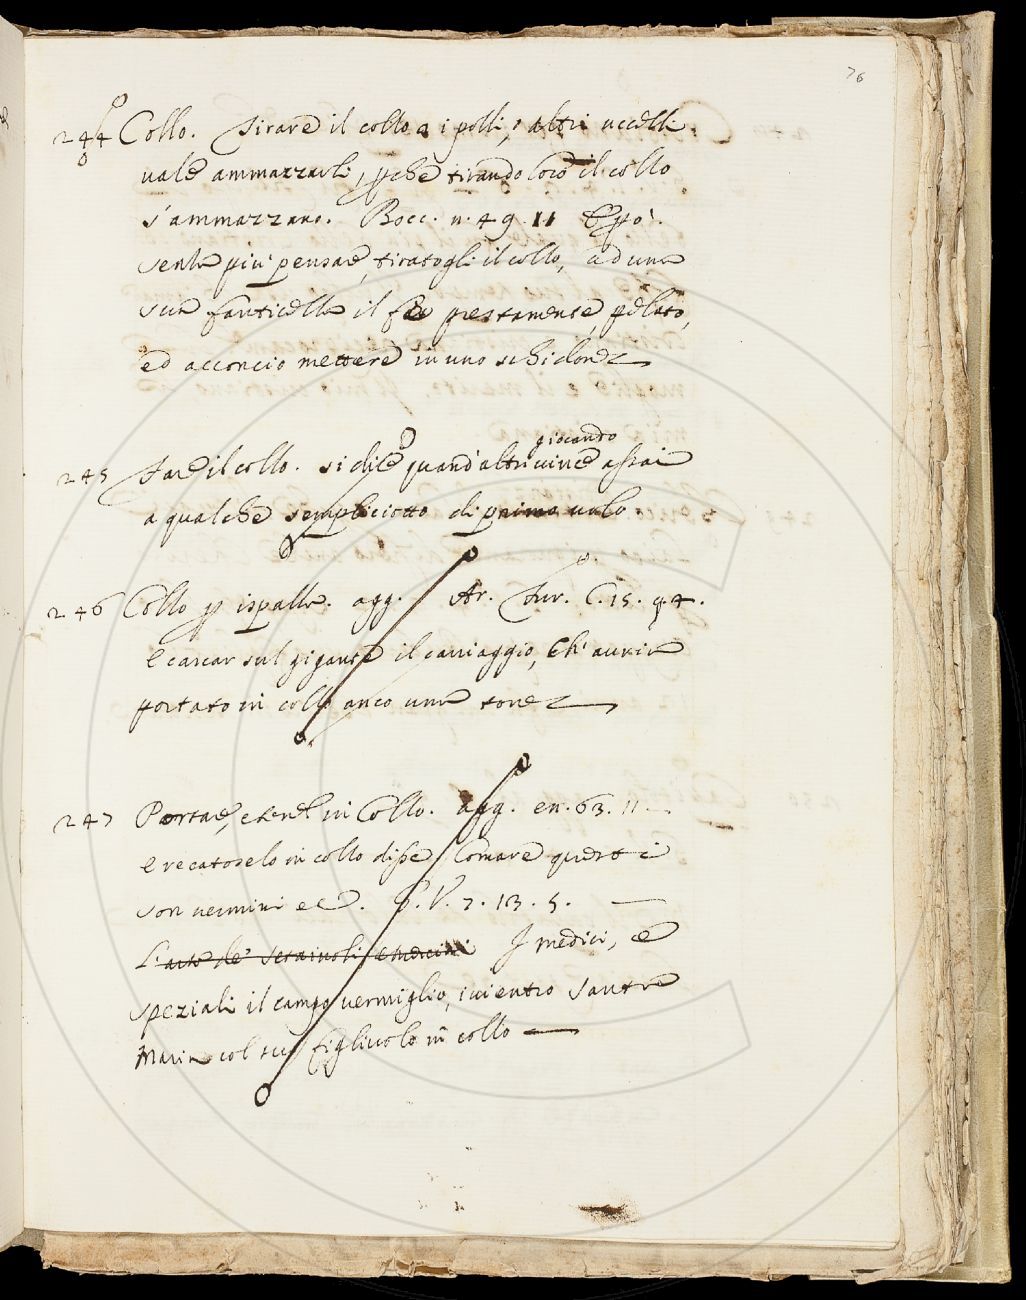 76
244 Collo. Tirare il collo a i polli, e altri uccelli
vale ammazzarli, pche tirando loro il collo
s'ammazzano. Bocc. n. 49. 11
senza più pensare, tiratogli il collo, ad una
sua fanticella il fe prestamente, pelato,
ed acconcio mettere in uno schidone
giocando
245 Tare il collo. si dice quand'altri vince assai
a qualche sempliciotto di primo volo
246 Collo p ispalla. agg. Ar. Fur. C. 15. 94.
E carcar sul gigante il carriaggio, Ch'avria
portato in collo anco una torre
247 Portare, e tener in Collo. agg. en. 63. 11.
E recatoselo in collo disse Comare questi
son vermini ec. G. V. 7. 13. 5.
L' arte de' I medici, e
speziali il campo vermiglio, ivi entro Santa
Maria col suo figliuolo in collo